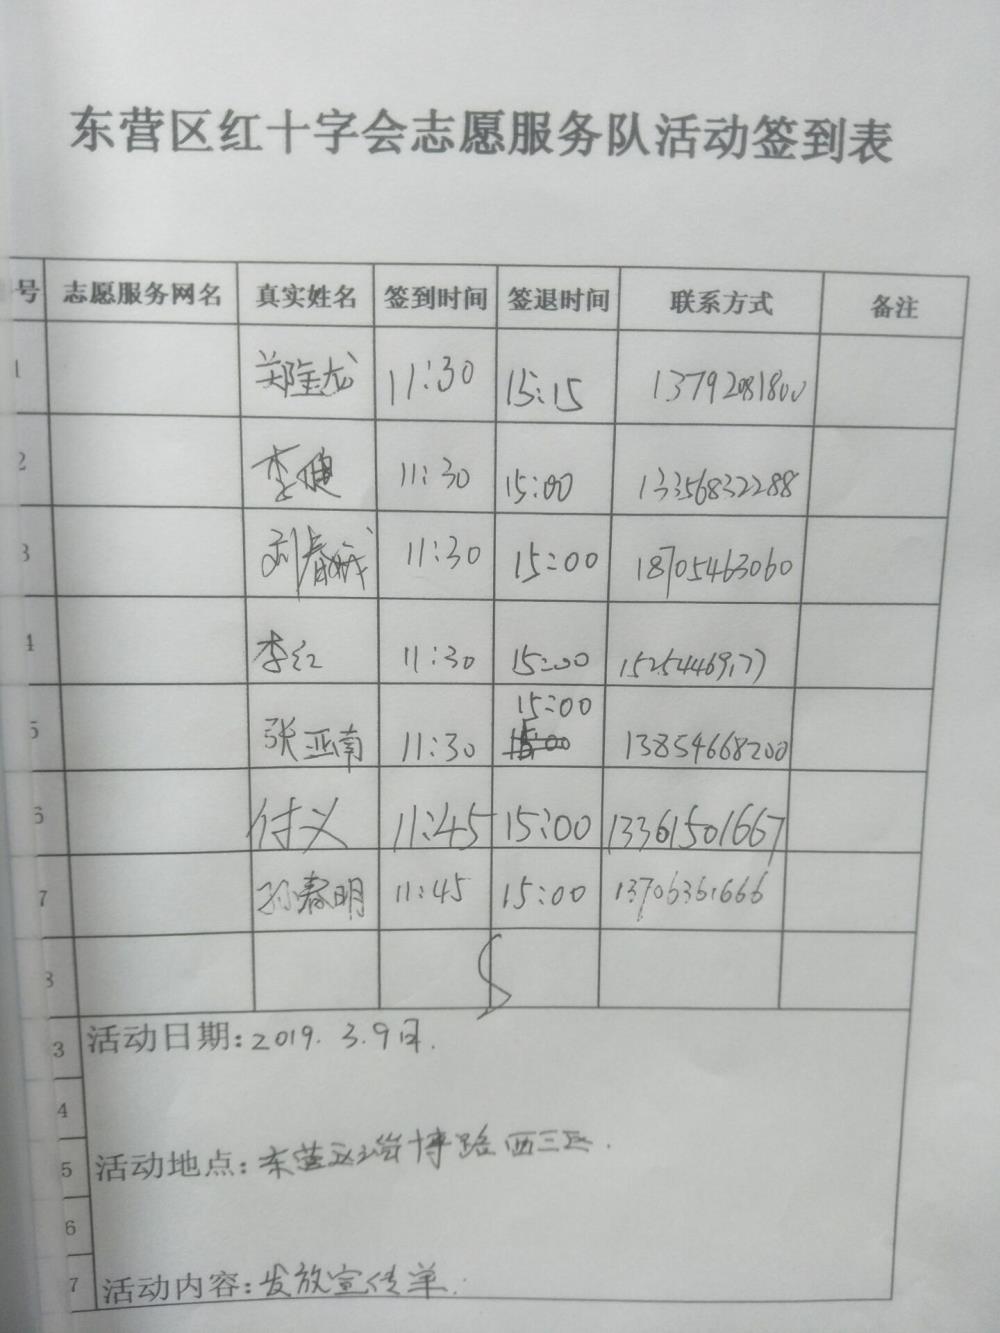 东营区红十字会志愿服务队活动签到表
号 志愿服务网名 真实姓名 签到时间 签退时间 联系方式 备注
1 郑宝龙 11:30 15:15 13792081800
2 李 11:30 15:00 13356832288
3 刘春 11:30 15:00 18705463060
4 李红 11:30 15:00 15254469177
15:00
5 张亚南 11:30 13854668200
6 付义 11:45 15:00 13361501667
7 孙春明 11:45 15:00 13706361666
8
3 活动日期:2019.3.9日.
4
5 活动地点:东营区 博路西三区.
6
7 活动内容:发放宣传单.